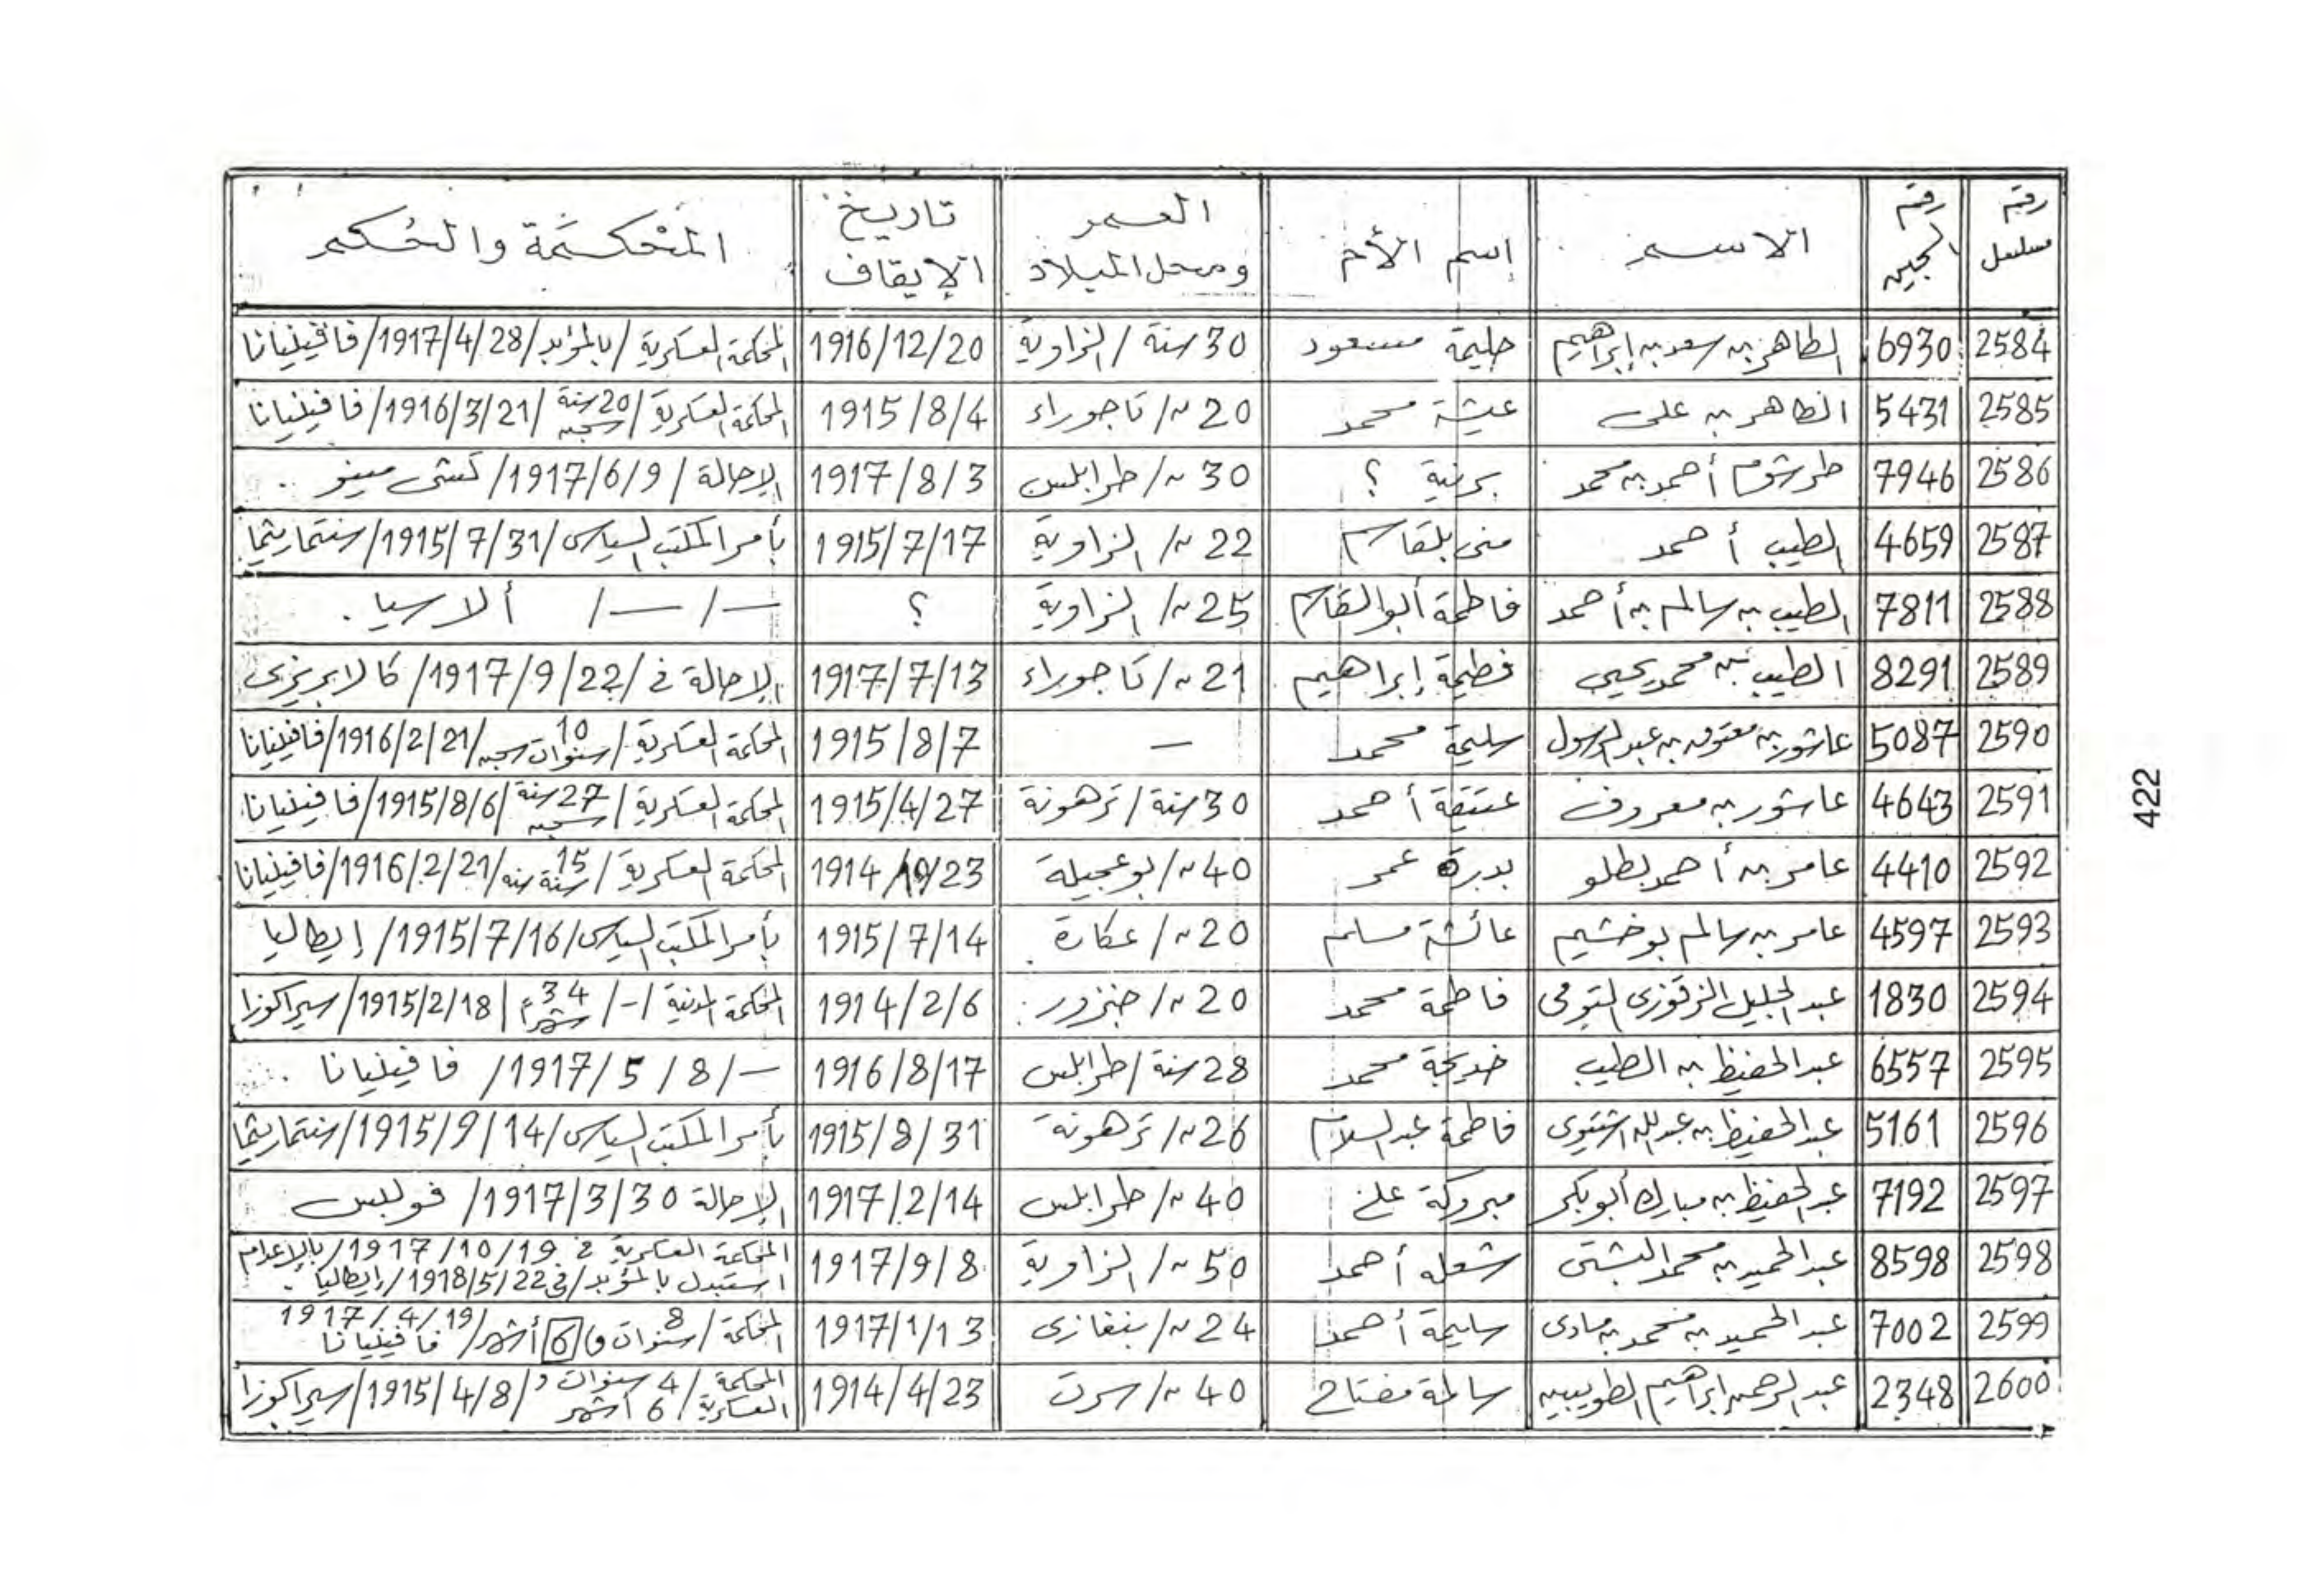 رقم مسلسل | رقم السجين | الاسم | إسم الأم | العمر ومحل الميلاد | تاريخ الإيقاف | المحكمة والحكم
2584 | 6930 | الطاهر بن سعد بن إبراهيم | حليمة مسعود | 30 سنة / الزاوية | 1916/12/20 | المحكمة العسكرية / بالمؤبد / 1917/4/28 / فافينيانا
2585 | 5431 | الطاهر بن على | عيشة محمد | 20 // / تاجوراء | 1915/8/4 | المحكمة العسكرية / 20 سنة سجن / 1916/3/21 / فافينيانا
2586 | 7946 | طرشوم أحمد بن محمد | برنية ؟ | 30 // / طرابلس | 1917/8/3 | الإحالة / 1917/6/9 /
2587 | 4659 | الطيب أحمد | منى بلقاسم | 22 // / الزاوية | 1915/7/17 | بأمر المكتب السياسى / 1915/7/31 /
2588 | 7811 | الطيب بن سالم بن أحمد | فاطمة أبوالقاسم | 25 // / الزاوية | ؟ | — / — / ألاسيا .
2589 | 8291 | الطيب بن محمد يحيى | فطيمة إبراهيم | 21 // / تاجوراء | 1917/7/13 | الإحالة في / 1917/9/22 / كالابريزى
2590 | 5087 | عاشور بن معتوق بن عبدالرسول | سليمة محمد | — | 1915/8/7 | المحكمة العسكرية / 10 سنوات سجن / 1916/2/21 / فافينيانا
2591 | 4643 | عاشور بن معروف | عتيقة أحمد | 30 سنة / ترهونة | 1915/4/27 | المحكمة العسكرية / 27 سنة سجن / 1915/8/6 / فافينيانا
2592 | 4410 | عامر بن أحمد بطلو | بدرة عمر | 40 // / بوعجيلة | 1914/10/23 | المحكمة العسكرية / 15 سنة / 1916/2/21 / فافينيانا
2593 | 4597 | عامر بن سالم بوخشيم | عائشة مسلم | 20 // / عكارة | 1915/7/14 | بأمر المكتب السياسى / 1915/7/16 / إيطاليا
2594 | 1830 | عبدالجليل الزقوزى التومى | فاطمة محمد | 20 // / جنزور | 1914/2/6 | المحكمة المدنية / - / 34 شهراً / 1915/2/18 / سيراكوزا
2595 | 6557 | عبدالحفيظ بن الطيب | خديجة محمد | 28 سنة / طرابلس | 1916/8/17 | — / 1917/5/8 / فافينيانا .
2596 | 5161 | عبدالحفيظ بن عبدالله اشتيوى | فاطمة عبدالسلام | 26 // / ترهونة | 1915/8/31 | بأمر المكتب السياسى / 1915/9/14 /
2597 | 7192 | عبدالحفيظ بن مبارك أبوبكر | مبروكة على | 40 // / طرابلس | 1917/2/14 | الإحالة 1917/3/30 /
2598 | 8598 | عبدالحميد بن محمد البشتى | شعله أحمد | 50 // / الزاوية | 1917/9/8 | المحكمة العسكرية في 1917/10/19 / بالإعدام استبدل بالمؤبد / في 1918/5/22 / إيطاليا .
2599 | 7002 | عبدالحميد بن محمد بن | سليمة أحمد | 24 // / بنغازى | 1917/1/13 | المحكمة / 8 سنوات و / 6 أشهر / 1917/4/19 فافينيانا
2600 | 2348 | عبدالرحمن إبراهيم | سالمة مفتاح | 40 // / سرت | 1914/4/23 | المحكمة العسكرية / 4 سنوات و 6 أشهر / 1915/4/8 / سيراكوزا
422